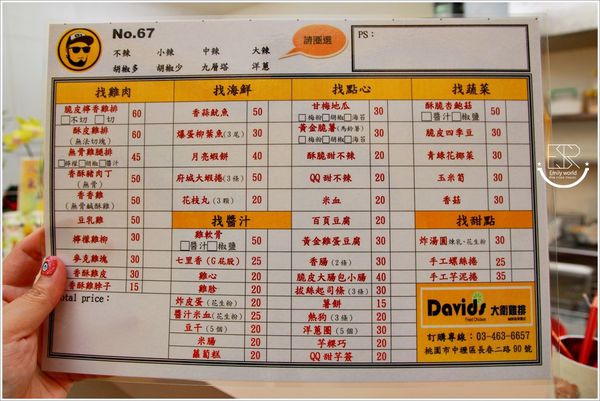 No.67
不辣 小辣 中辣 大辣
胡椒多 胡椒少 九層塔 洋蔥
請圈選
PS:
找雞肉
脆皮檸香雞排 60
□不切 □切
酥皮雞排 60
(無法切塊)
無骨雞腿排 45
□檸檬□胡椒□醬汁
香酥豬肉丁 50
(無骨)
香香雞 50
(無骨鹹酥雞)
豆乳雞 50
檸檬雞柳 30
麥克雞塊 30
香酥雞皮 30
香酥雞脖子 15
Total price:
找海鮮
香蒜魷魚 50
爆蛋柳葉魚(3尾) 30
月亮蝦餅 40
府城大蝦捲(3條) 50
花枝丸(3顆) 20
找醬汁
雞軟骨 50
□醬汁□椒鹽
七里香(G屁股) 25
雞心 20
雞胗 20
炸皮蛋(花生粉) 20
醬汁米血(花生粉) 25
豆干(5個) 20
米腸 20
蘿蔔糕 20
找點心
甘梅地瓜 30
□梅粉□胡椒□海苔
黃金脆薯(馬鈴薯) 30
□梅粉□胡椒□海苔
酥脆甜不辣 20
QQ甜不辣 20
米血 20
百頁豆腐 20
黃金雞蛋豆腐 30
香腸(2條) 30
脆皮大腸包小腸 40
拔絲起司條(3條) 30
薯餅 15
熱狗(3條) 20
洋蔥圈(5個) 30
芋粿巧 20
QQ甜芋簽 20
找蔬菜
酥脆杏鮑菇 50
□醬汁□椒鹽
脆皮四季豆 30
青綠花椰菜 30
玉米筍 30
香菇 30
找甜點
炸湯圓(煉乳、花生粉) 30
手工螺絲捲 25
手工芋泥捲 35
David's 大衛雞排
Fried Chicken
訂購專線:03-463-6657
桃園市中壢區長春二路90號
Emily world